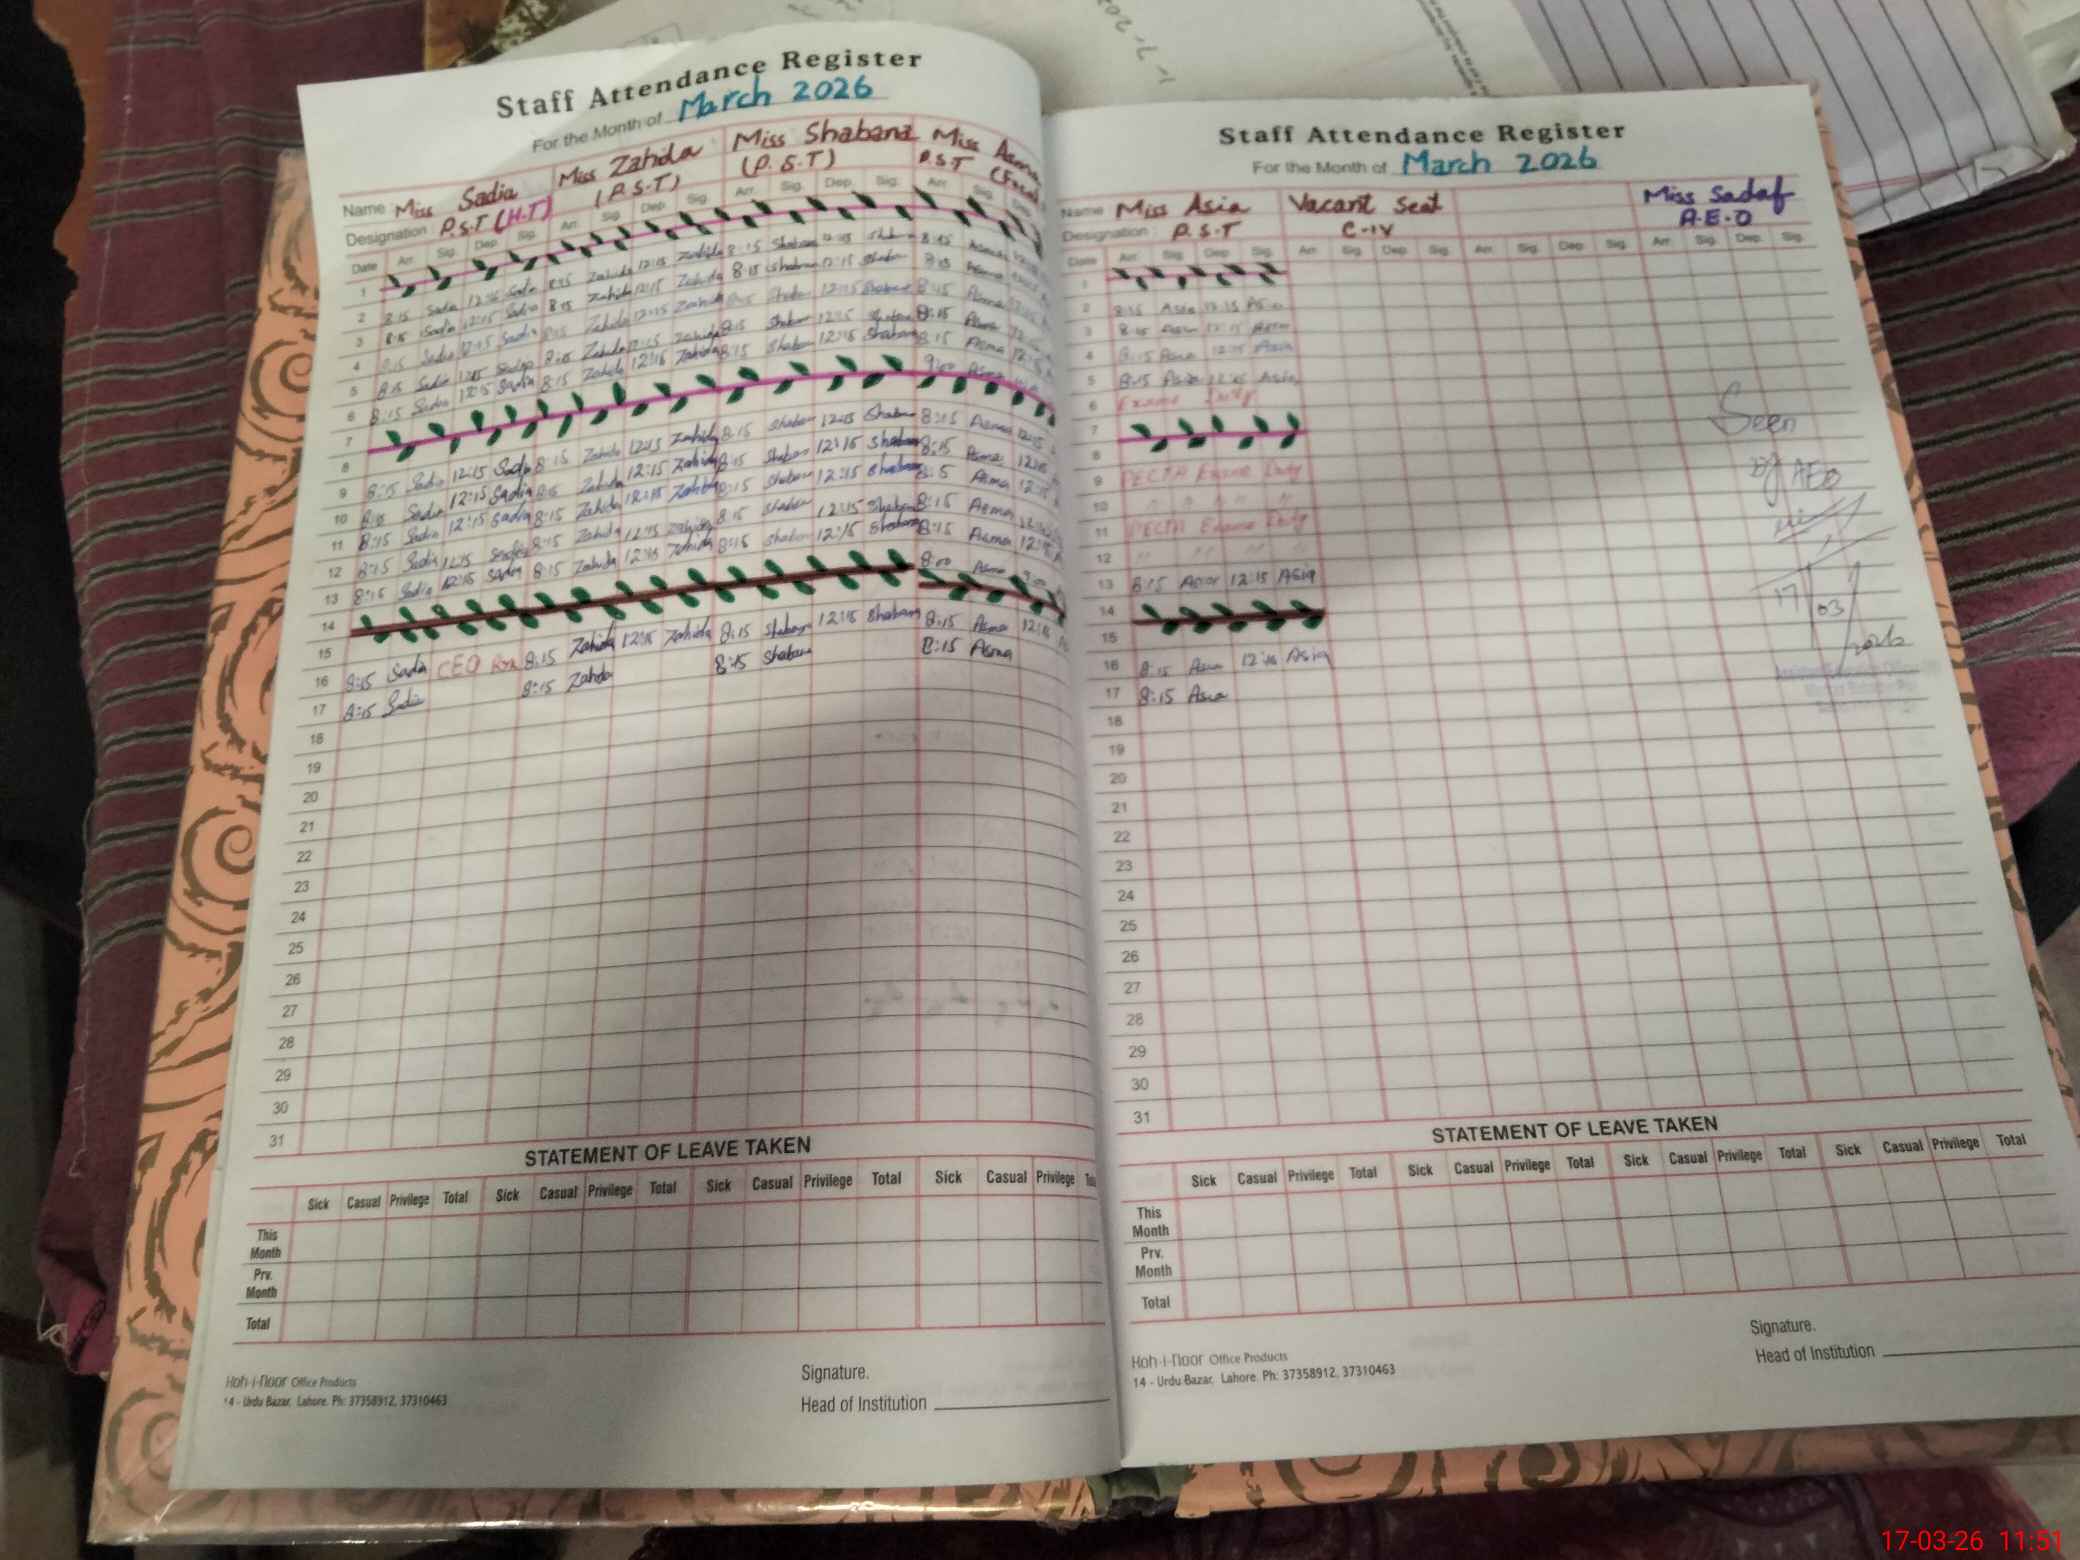 Staff Attendance Register
For the Month of March 2026
Name Miss Sadia Miss Zahida Miss Shabana Miss Asma
Designation P.S.T (H.T) (P.S.T) (P.S.T) P.S.T
Date Arr. Sig. Dep. Sig. Arr. Sig. Dep. Sig. Arr. Sig. Dep. Sig. Arr. Sig. Dep.
1
2 8:15 Sadia 12:15 Sadia 8:15 Zahida 12:15 Zahida 8:15 Shabana 12:15 Shabana 8:15 Asma
3 8:15 Sadia 12:15 Sadia 8:15 Zahida 12:15 Zahida 8:15 Shabana 12:15 Shabana 8:15 Asma
4 8:15 Sadia 12:15 Sadia 8:15 Zahida 12:15 Zahida 8:15 Shabana 12:15 Shabana 8:15 Asma
5 8:15 Sadia 12:15 Sadia 8:15 Zahida 12:15 Zahida 8:15 Shabana 12:15 Shabana 8:15 Asma
6 8:15 Sadia 12:15 Sadia 8:15 Zahida 12:15 Zahida 8:15 Shabana 12:15 Shabana 8:15 Asma 12:15
7 9:00 Asma
8
9 8:15 Sadia 12:15 Sadia 8:15 Zahida 12:15 Zahida 8:15 Shabana 12:15 Shabana 8:15 Asma 12:15
10 8:15 Sadia 12:15 Sadia 8:15 Zahida 12:15 Zahida 8:15 Shabana 12:15 Shabana 8:15 Asma 12:15
11 8:15 Sadia 12:15 Sadia 8:15 Zahida 12:15 Zahida 8:15 Shabana 12:15 Shabana 8:15 Asma 12:15
12 8:15 Sadia 12:15 Sadia 8:15 Zahida 12:15 Zahida 8:15 Shabana 12:15 Shabana 8:15 Asma
13 8:15 Sadia 12:15 Sadia 8:15 Zahida 12:15 Zahida 8:15 Shabana 12:15 Shabana 8:15 Asma 12:15
14 8:00 Asma 9:00
15
16 8:15 Sadia CEO 8:15 Zahida 12:15 Zahida 8:15 Shabana 12:15 Shabana 8:15 Asma 12:15
17 8:15 Sadia 8:15 Zahida 8:15 Shabana 8:15 Asma
18
19
20
21
22
23
24
25
26
27
28
29
30
31
STATEMENT OF LEAVE TAKEN
Sick Casual Privilege Total Sick Casual Privilege Total Sick Casual Privilege Total Sick Casual Privilege
This Month
Prv. Month
Total
Signature.
Head of Institution
Koh-i-noor Office Products
14 - Urdu Bazar, Lahore. Ph: 37358912, 37310463
Staff Attendance Register
For the Month of March 2026
Name Miss Asia Vacant Seat Miss Sadaf
Designation P.S.T C-IV A.E.O
Date Arr. Sig. Dep. Sig. Arr. Sig. Dep. Sig. Arr. Sig. Dep. Sig. Arr. Sig. Dep. Sig.
1
2 8:15 Asia 12:15 Asia
3 8:15 Asia 12:15 Asia
4 8:15 Asia 12:15 Asia
5 8:15 Asia 12:15 Asia
6 Exams Duty
7
8
9 PECTA Exams Duty
10 " " " "
11 PECTA Exams Duty
12 " " " "
13 8:15 Asia 12:15 Asia
14
15
16 8:15 Asia 12:15 Asia
17 8:15 Asia
Seen
By AEO
17/03/2026
18
19
20
21
22
23
24
25
26
27
28
29
30
31
STATEMENT OF LEAVE TAKEN
Sick Casual Privilege Total Sick Casual Privilege Total Sick Casual Privilege Total Sick Casual Privilege Total
This Month
Prv. Month
Total
Signature.
Head of Institution
Koh-i-noor Office Products
14 - Urdu Bazar, Lahore. Ph: 37358912, 37310463
17-03-26 11:51